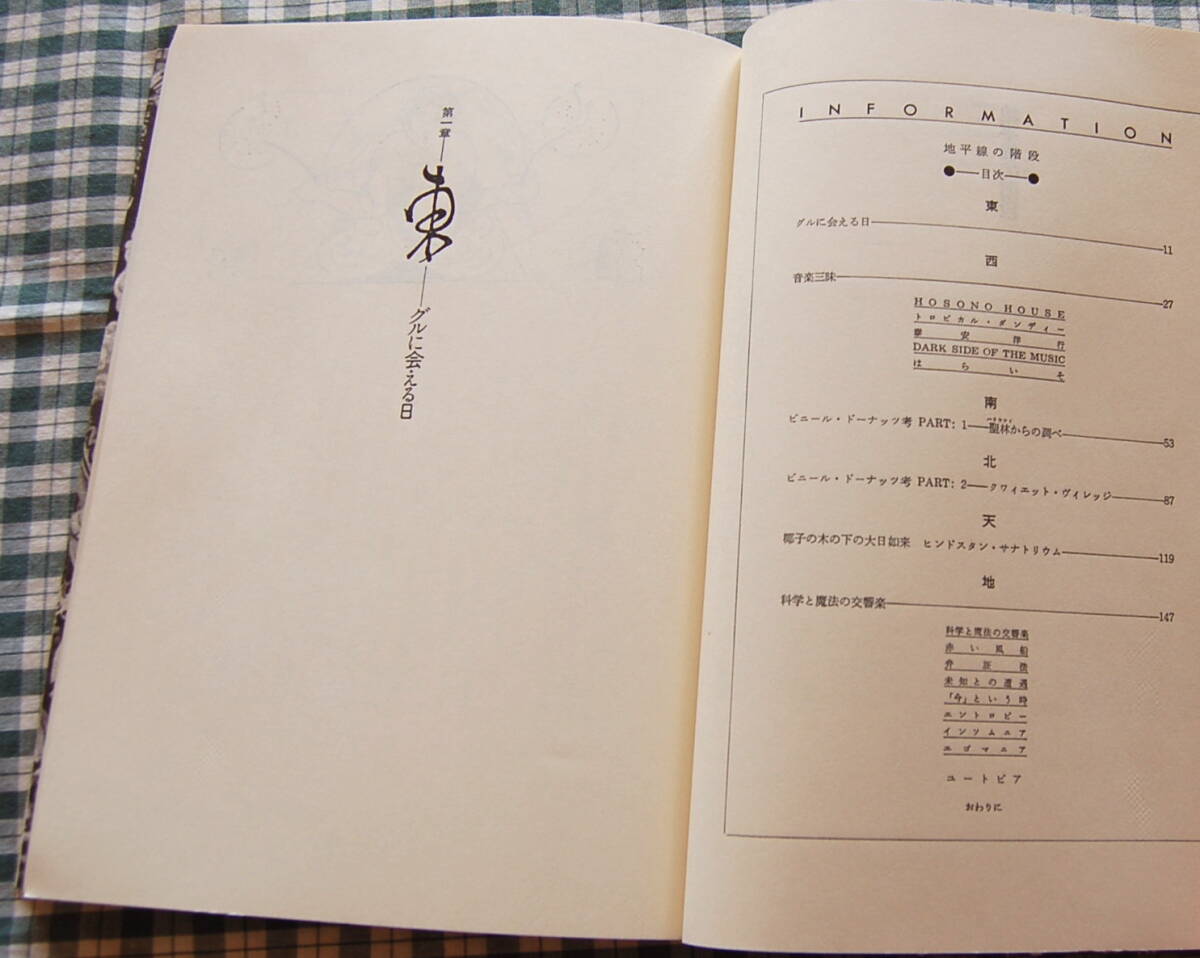 INFORMATION
地平線の階段
●——目次——●
東
グルに会える日——11
西
音楽三昧——27
HOSONO HOUSE
トロピカル・ダンディー
泰安洋行
DARK SIDE OF THE MUSIC
はらいそ
南
ビニール・ドーナッツ考 PART: 1——聖林からの調べ——53
北
ビニール・ドーナッツ考 PART: 2——クワイエット・ヴィレッジ——87
天
椰子の木の下の大日如来 ヒンドスタン・サナトリウム——119
地
科学と魔法の交響楽——147
科学と魔法の交響楽
赤い風船
弁証法
未知との遭遇
「今」という時
エントロピー
インソムニア
エゴマニア
ユートピア
おわりに
第一章——東——グルに会える日